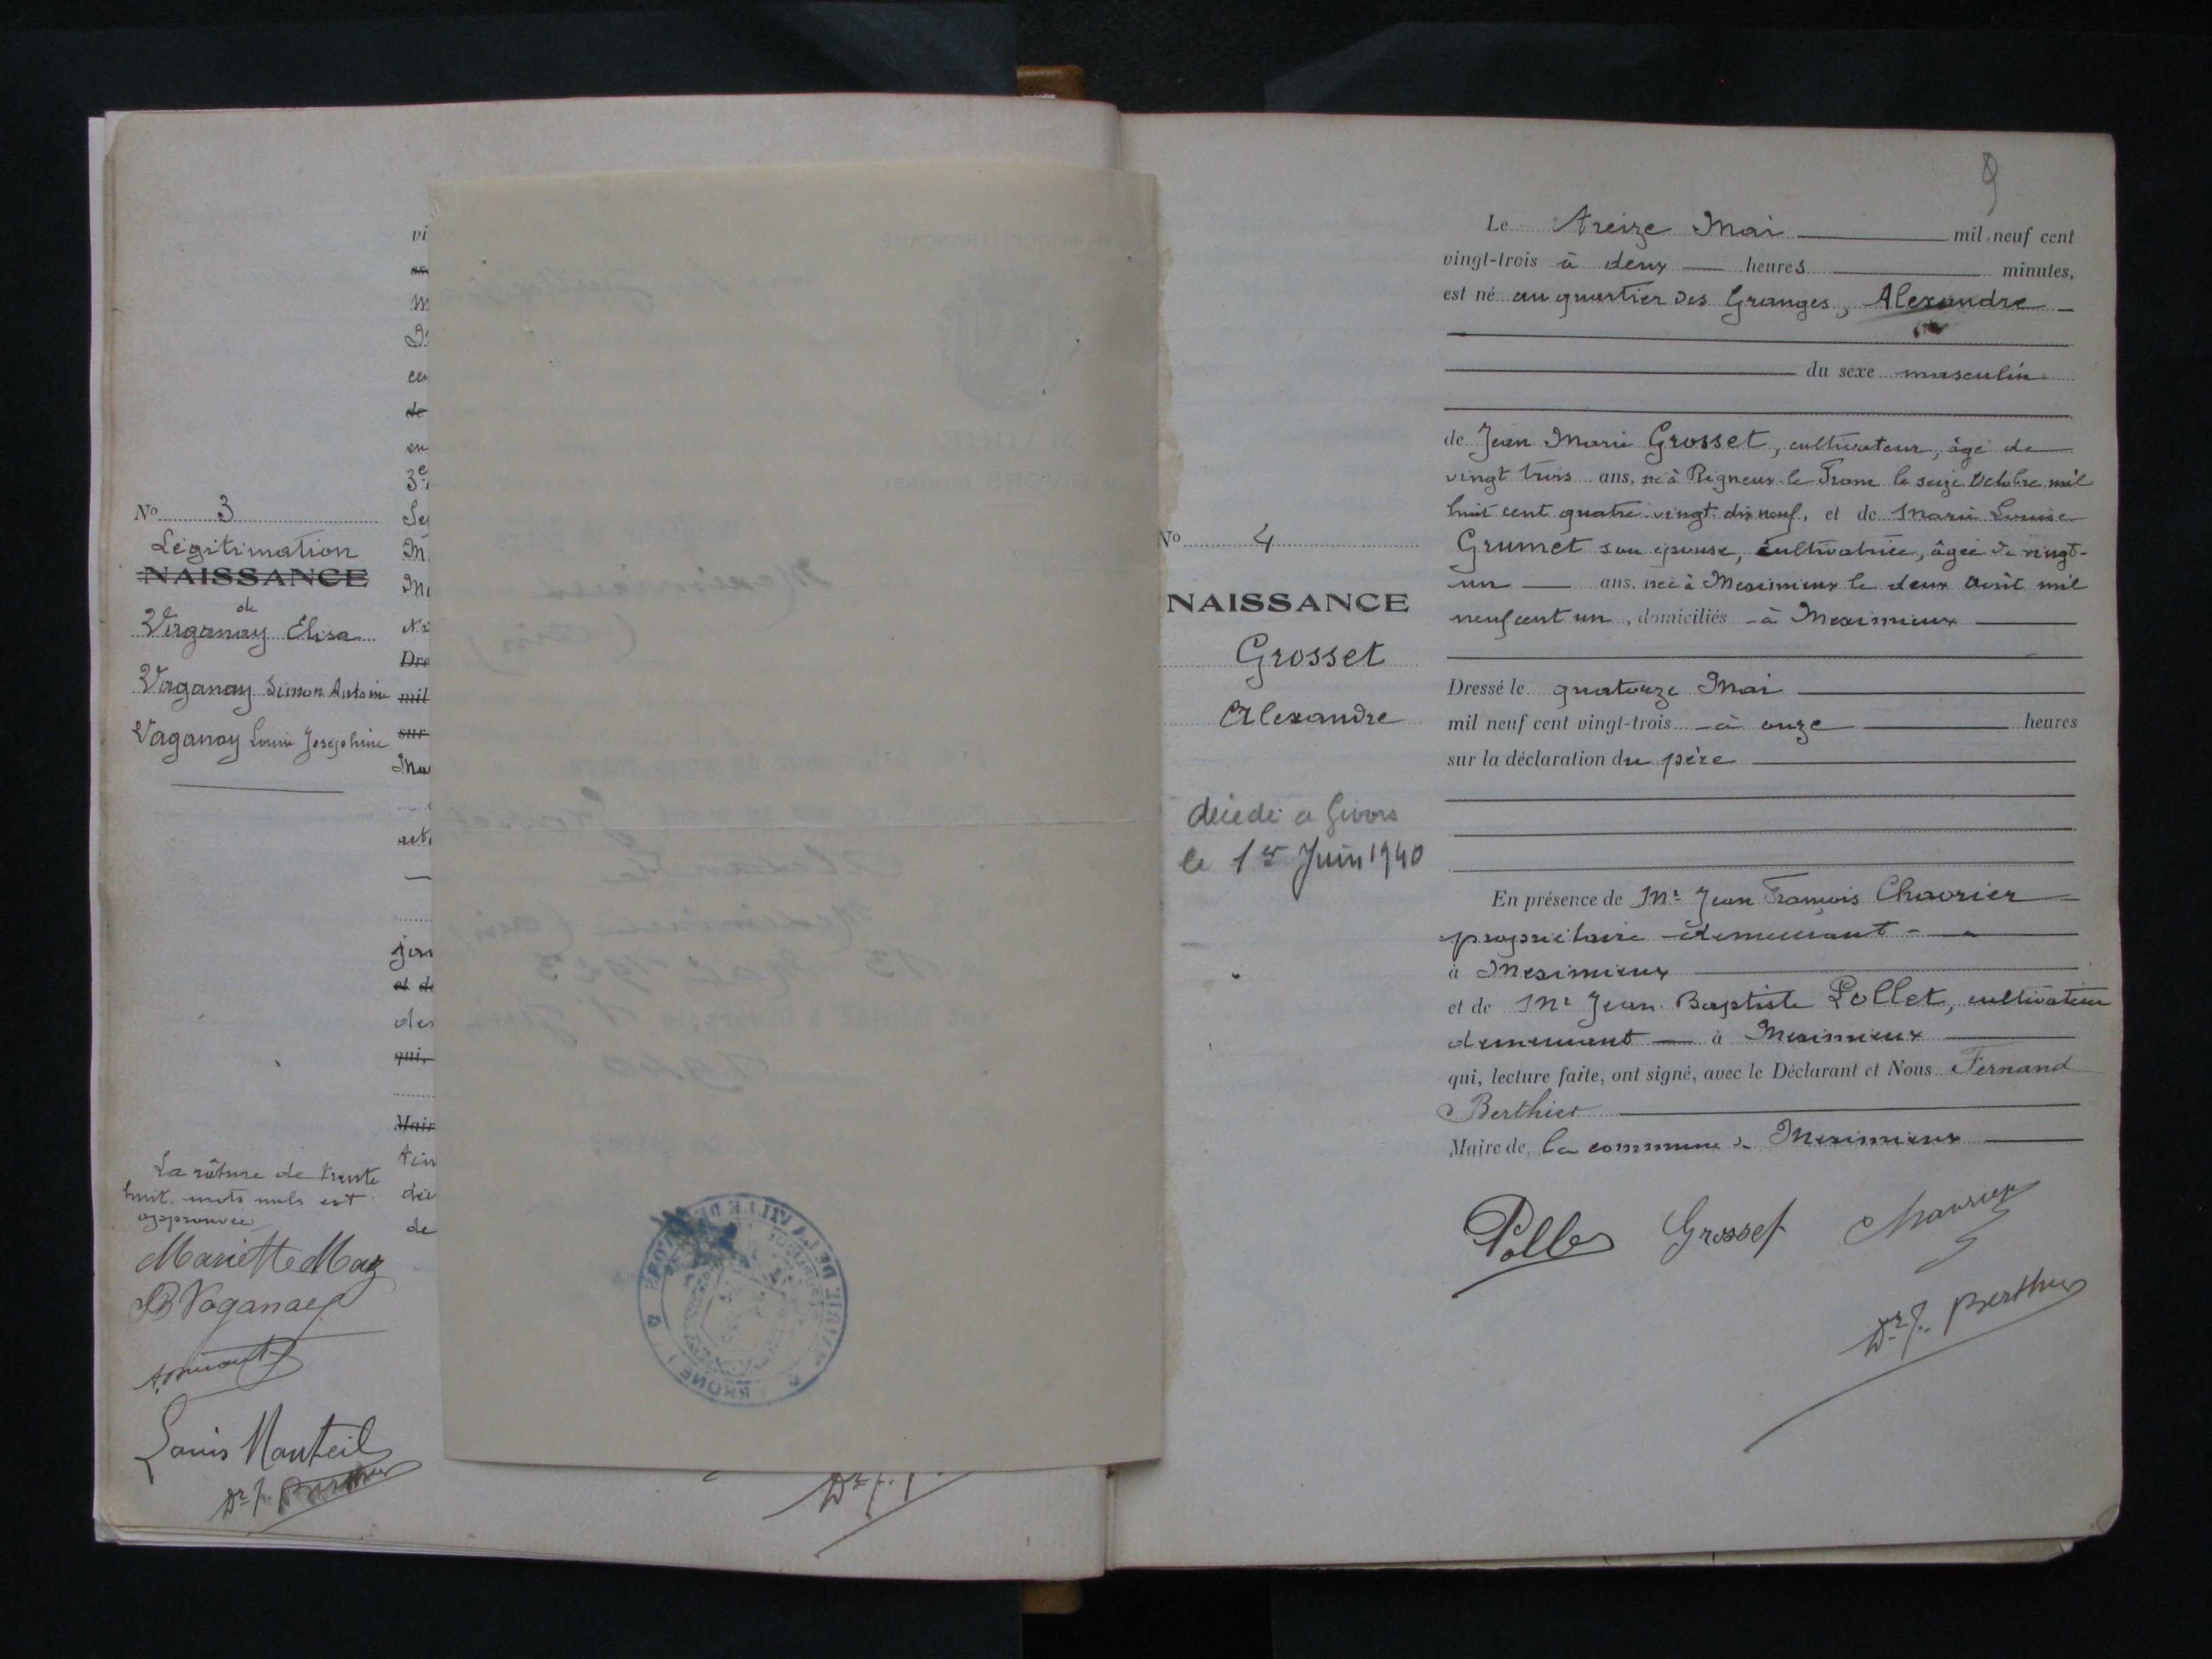 N° 3
Légitimation
NAISSANCE
de
Vaganay Élisa
Vaganay Simon Antoine
Vaganay Louise Joséphine
La râture de trente
huit mots nuls est
approuvée
Mariette Maz
B Vaganay
Louis Manteil
Dr f. Berthier
vi
3e
Dre
mil
sur
Ma
jan
et de
des
qui,
Mair
de
N° 4
NAISSANCE
Grosset
Alexandre
décédé a Givors
le 1er Juin 1940
9
Le treize Mai mil neuf cent
vingt-trois à deux heures minutes,
est né au quartier des Granges, Alexandre
du sexe masculin
de Jean Marie Grosset, cultivateur, âgé de
vingt trois ans, né à Rigneux-le-Franc le seize Octobre mil
huit cent quatre-vingt-dix neuf, et de Marie Louise
Grumet son épouse, cultivatrice, âgée de vingt-
un ans, née à Meximieux le deux août mil
neuf cent un, domiciliés à Meximieux
Dressé le quatorze Mai
mil neuf cent vingt-trois à onze heures
sur la déclaration du père
En présence de Mr Jean François Chavrier
propriétaire demeurant
à Meximieux
et de Mr Jean Baptiste Pollet, cultivateur
demeurant à Meximieux
qui, lecture faite, ont signé, avec le Déclarant et Nous Fernand
Berthier
Maire de la commune de Meximieux
Pollet Grosset Chavrier
Dr f. Berthier